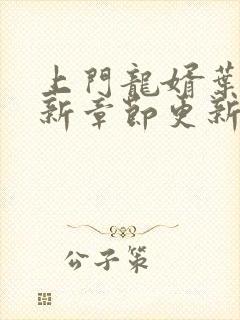 上門龍婿葉
新章節更新
公子策